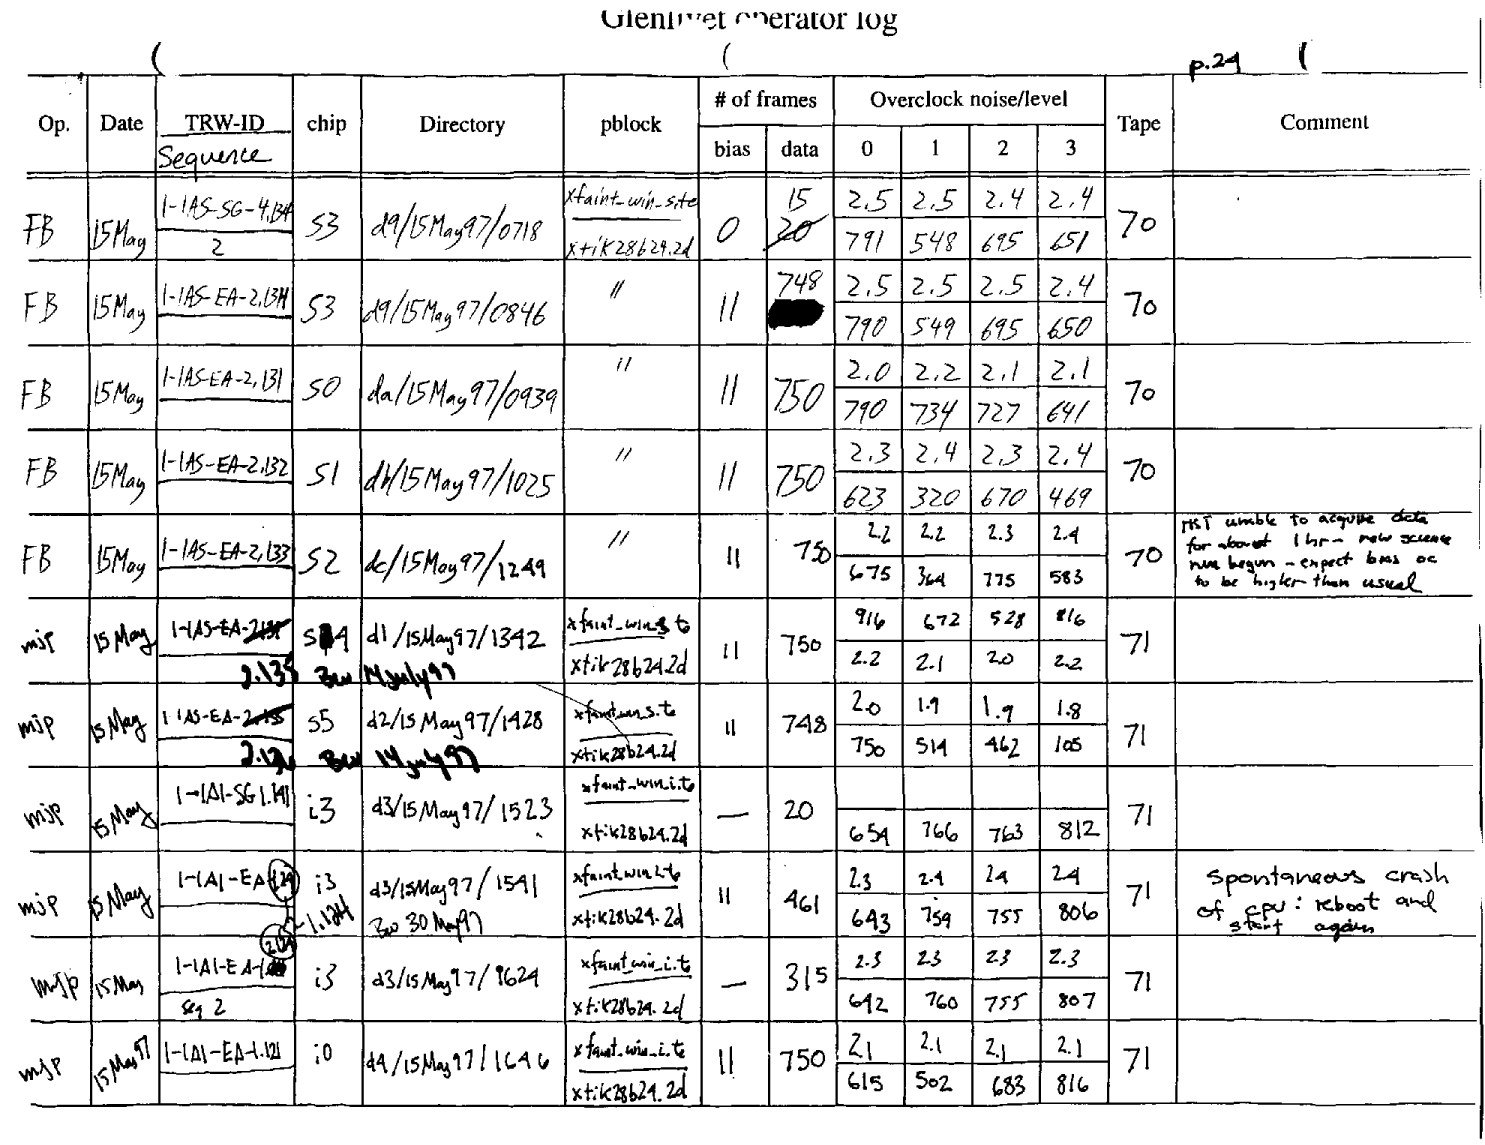 Glenlivet operator log
p.24
Op. Date TRW-ID chip Directory pblock # of frames Overclock noise/level Tape Comment
Sequence bias data 0 1 2 3
1-IAS-SG-4.134 xfaint_win_s.te 15 2.5 2.5 2.4 2.4
FB 15May S3 d9/15May97/0718 0 20 70
2 xtik28b24.2d 791 548 695 651
1-IAS-EA-2.134 " 748 2.5 2.5 2.5 2.4
FB 15May S3 d9/15May97/0846 11 70
790 549 695 650
1-IAS-EA-2.131 " 2.0 2.2 2.1 2.1
FB 15May S0 da/15May97/0939 11 750 70
790 734 727 641
1-IAS-EA-2.132 " 2.3 2.4 2.3 2.4
FB 15May S1 db/15May97/1025 11 750 70
623 320 670 469
1-IAS-EA-2.133 " 2.2 2.2 2.3 2.4 unable to acquire data
FB 15May S2 dc/15May97/1249 11 750 70 for about 1 hr - new science
run begun - expect bias oc
675 364 775 583 to be higher than usual
1-IAS-EA- xfaint_win_s.te 916 672 528 816
mjp 15May S4 d1/15May97/1342 11 750 71
xtik28b24.2d 2.2 2.1 2.0 2.2
2.135 Bev 14July97
1-IAS-EA- xfaint_win_s.te 2.0 1.9 1.9 1.8
mjp 15May s5 d2/15May97/1428 11 748 71
xtik28b24.2d 750 514 462 105
Bev 14July97
1-IAI-SG 1.141 xfaint_win_i.te
mjp 15May i3 d3/15May97/1523 — 20 71
xtik28b24.2d 654 766 763 812
1-IAI-EA xfaint_win_i.te 2.3 2.4 2.4 2.4 spontaneous crash
mjp 15May i3 d3/15May97/1541 11 461 71 of cpu: reboot and
1.124 Bev 30May97 xtik28b24.2d 643 759 755 806 start again
1-IAI-EA xfaint_win_i.te 2.3 2.3 2.3 2.3
mjp 15May i3 d3/15May97/1624 — 315 71
seq 2 xtik28b24.2d 642 760 755 807
1-IAI-EA-1.121 xfaint_win_i.te 2.1 2.1 2.1 2.1
mjp 15May97 i0 d4/15May97/1646 11 750 71
xtik28b24.2d 615 502 683 816